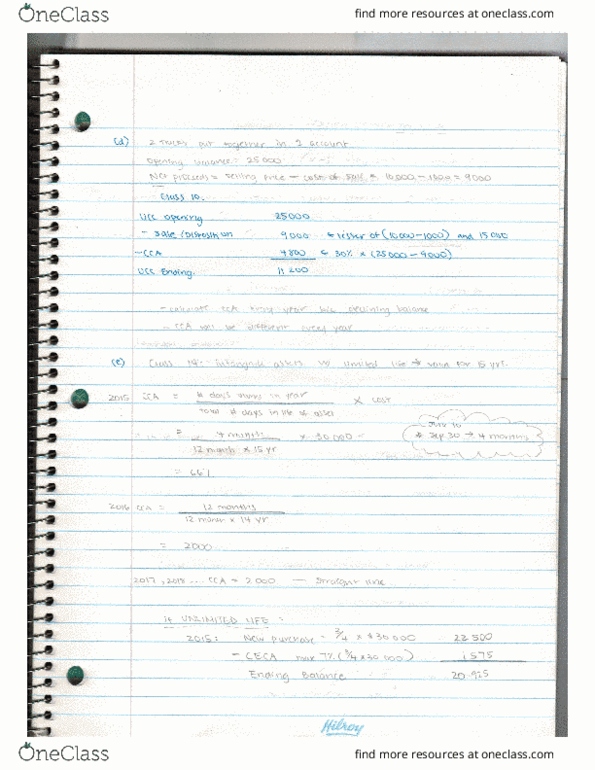 OneClass
find more resources at oneclass.com
(d) 2 trucks put together in 2 account
Opening balance: 25000
Net proceeds = selling price - cost of = 10,000 - 1000 = 9000
Class 10.
UCC Opening 25000
- sale/disposition 9000 ← lesser of (10000-1000) and 15000
- CCA 4800 ← 30% × (25000-9000)
UCC Ending. 11200
- calculate CCA every year b/c declining balance
- CCA will be different every year
(e) Class 14: intangible assets w limited life → valid for 15 yr.
2015 CCA = # days owns in year × cost
total # days in life of asset
June 10
Sep 30 → 4 months
= 4 months × 30000
12 month × 15 yr
= 667
2016 CCA = 12 months
12 month × 14 yr
= 2000
2017, 2018... CCA = 2000 — straight line
If UNLIMITED LIFE:
2015: New purchase - 3/4 × $30000 22 500
- CECA max 7% (3/4 × 30 000) 1 575
Ending Balance 20 925
Hilroy
OneClass
find more resources at oneclass.com